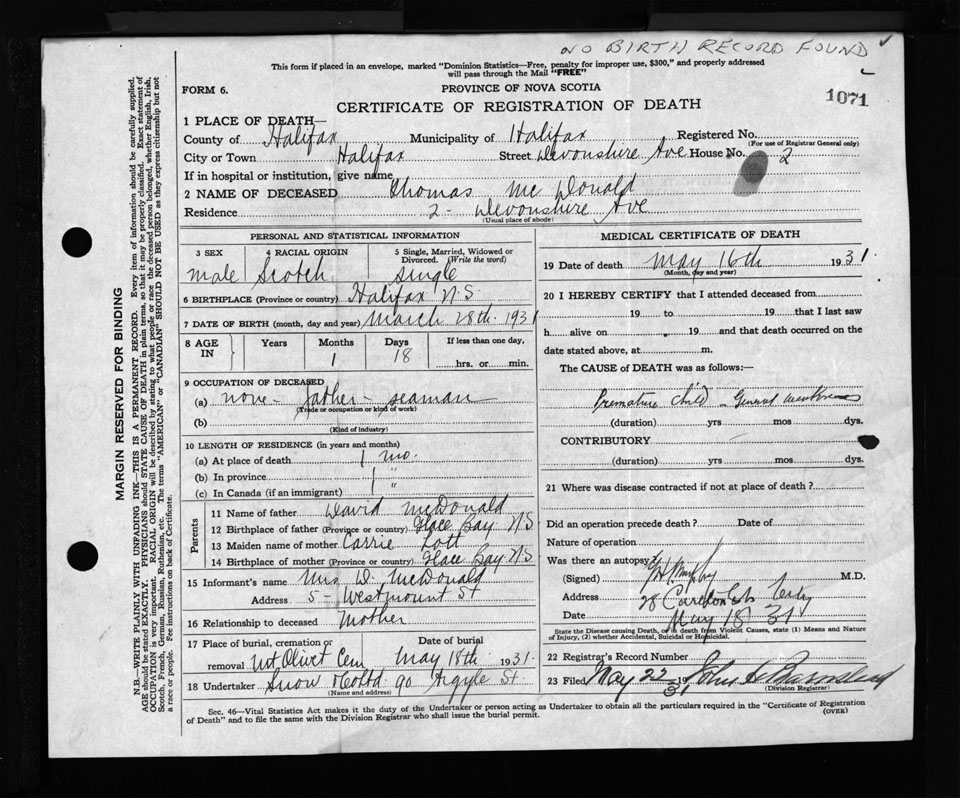 NO BIRTH RECORD FOUND
This form if placed in an envelope, marked "Dominion Statistics—Free, penalty for improper use, $300," and properly addressed
will pass through the Mail "FREE"
FORM 6.
PROVINCE OF NOVA SCOTIA
1071
CERTIFICATE OF REGISTRATION OF DEATH
1 PLACE OF DEATH—
County of Halifax Municipality of Halifax Registered No.
(For use of Registrar General only)
City or Town Halifax Street Devonshire Ave House No. 2
If in hospital or institution, give name
2 NAME OF DECEASED Thomas McDonald
Residence 2 - Devonshire Ave
(Usual place of abode)
PERSONAL AND STATISTICAL INFORMATION
3 SEX 4 RACIAL ORIGIN 5 Single, Married, Widowed or
Divorced. (Write the word)
male Scotch single
6 BIRTHPLACE (Province or country) Halifax N.S.
7 DATE OF BIRTH (month, day and year) March 28th. 1931
8 AGE IN Years Months Days If less than one day,
1 18 hrs. or min.
9 OCCUPATION OF DECEASED
(a) none - father - seaman
(Trade or occupation or kind of work)
(b)
(Kind of industry)
10 LENGTH OF RESIDENCE (in years and months)
(a) At place of death 1 mo.
(b) In province 1 "
(c) In Canada (if an immigrant)
Parents
11 Name of father David McDonald
12 Birthplace of father (Province or country) Glace Bay N.S.
13 Maiden name of mother Carrie Lott
14 Birthplace of mother (Province or country) Glace Bay N.S.
15 Informant's name Mrs D. McDonald
Address 5 - Westmount St
16 Relationship to deceased Mother
17 Place of burial, cremation or Date of burial
removal Mt Olivet Cem May 18th 1931.
18 Undertaker Snow & Co Ltd 90 Argyle St.
(Name and address)
MEDICAL CERTIFICATE OF DEATH
19 Date of death May 16th 1931
(Month, day and year)
20 I HEREBY CERTIFY that I attended deceased from
19 to 19 that I last saw
h alive on 19 and that death occurred on the
date stated above, at m.
The CAUSE of DEATH was as follows:—
Premature Child - General weakness
(duration) yrs mos dys.
CONTRIBUTORY
(duration) yrs mos dys.
21 Where was disease contracted if not at place of death?
Did an operation precede death? Date of
Nature of operation
Was there an autopsy?
(Signed) Murphy M.D.
Address 28 Carleton St City
Date May 18 31
State the Disease causing Death, or in death from Violent Causes, state (1) Means and Nature
of Injury, (2) whether Accidental, Suicidal or Homicidal.
22 Registrar's Record Number
23 Filed May 22 1931 John
(Division Registrar)
Sec. 46—Vital Statistics Act makes it the duty of the Undertaker or person acting as Undertaker to obtain all the particulars required in the "Certificate of Registration
of Death" and to file the same with the Division Registrar who shall issue the burial permit.
(OVER)
MARGIN RESERVED FOR BINDING
N.B.—WRITE PLAINLY WITH UNFADING INK—THIS IS A PERMANENT RECORD. Every item of information should be carefully supplied.
AGE should be stated EXACTLY. PHYSICIANS should STATE CAUSE OF DEATH in plain terms, so that it may be properly classified. Exact statement of
OCCUPATION is very important. RACIAL ORIGIN will be described by stating to what people or race the deceased person belonged, whether English, Irish,
Scotch, French, German, Russian, Ruthenian, etc. The terms "AMERICAN" or "CANADIAN" SHOULD NOT BE USED as they express citizenship but not
a race or people. Fee instructions on back of Certificate.